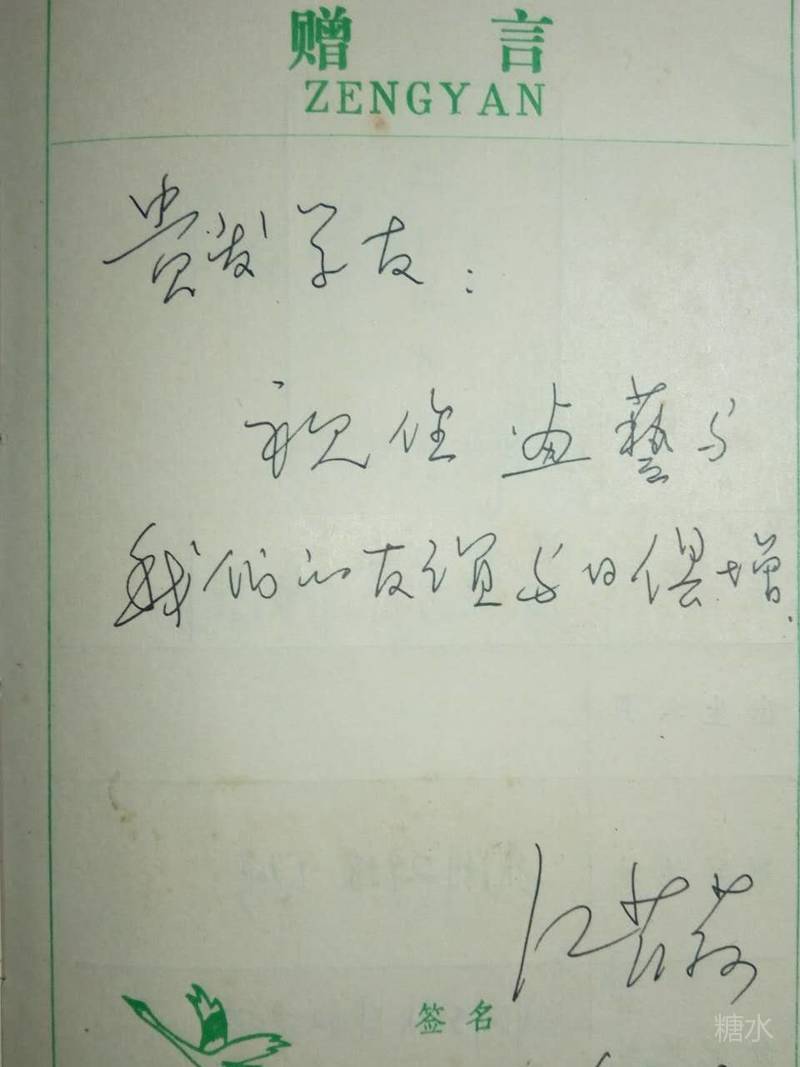 赠言
ZENGYAN
贵发学友：
祝你画藝与
我们的友谊与日俱增.
签名
糖水